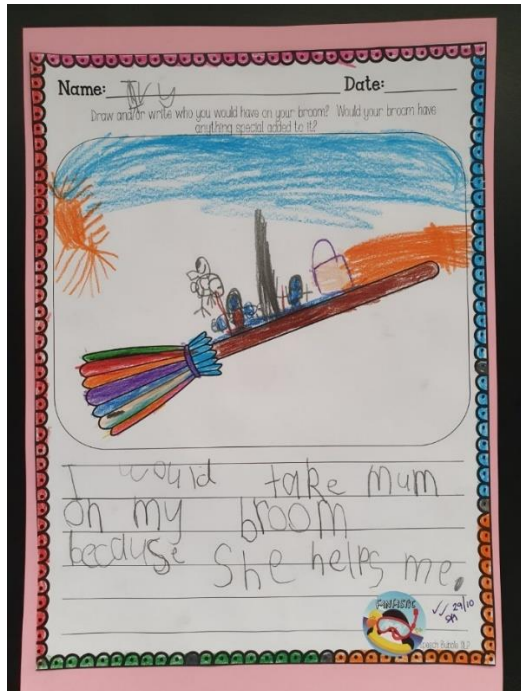 Name: Ivy Date:
Draw and/or write who you would have on your broom? Would your broom have
anything special added to it?
I would take Mum
on my broom
because She helps me.
FANTASTIC
29/10